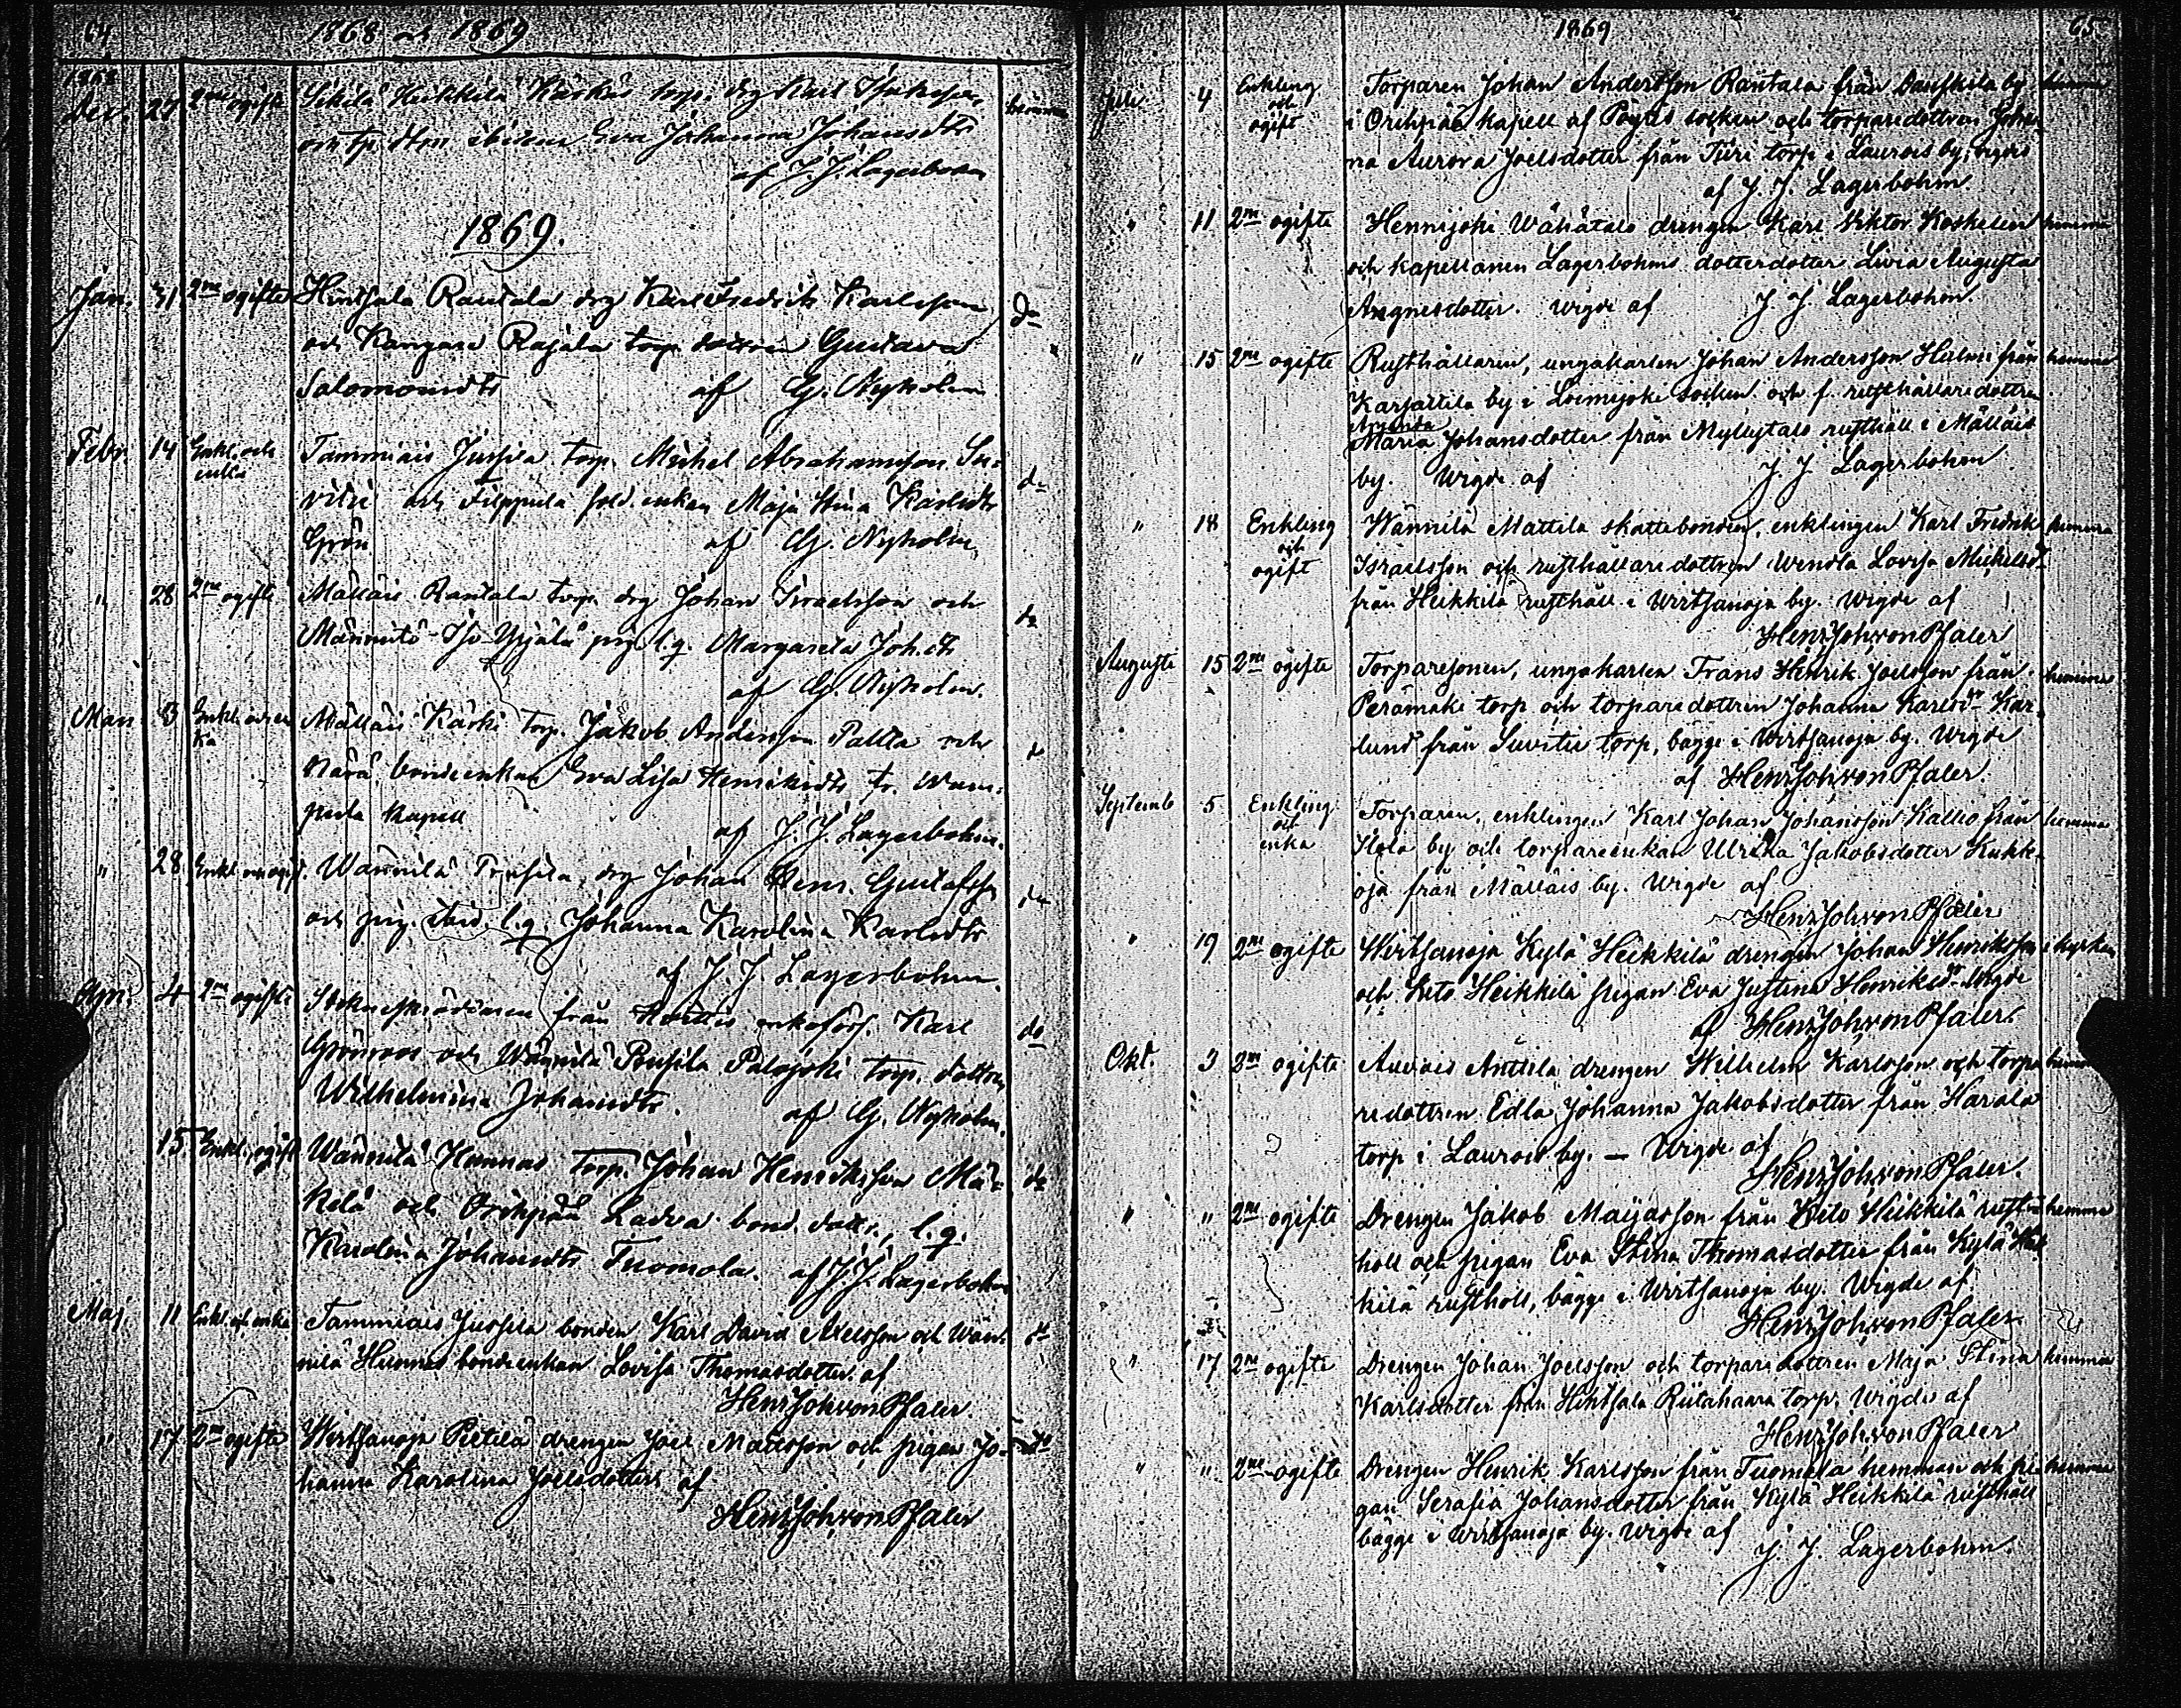 64
1868 och 1869
1868
Dec. 27 2ne ogifte Sikilä Heikkilä Karhu torp. drg Karl
och tp. dtrn ibidem Eva Johanna Johansdtr hemma
af J. J. Lagerbohm
1869.
Jan. 31 2ne ogifte Hintsala Rantala drg Karl Fredrik Karlsson do
och Kangare Rajala torp. dottren Gustava
Salomonsdtr af G. Nyholm
Febr. 14 Enkl. och enka Tammiais Jussila torp. Mickel Abrahamsson Su= do
vitie och Filppula sold. enkan Maja Stina Karlsdtr
Grön af G. Nyholm.
" 28 2ne ogifte Mälläis Rantala torp. drg Johan Israelsson och do
Männistö-Iso-Yrjälä pig. l.q. Margareta Joh.dr
af G. Nyholm.
Mars 3 Enkl. och enka Mälläis Karhi torp. Jakob Andersson Paltta och do
bondeenkan Eva Lisa Henriksdtr fr. Wam=
pula Kapell af J. J. Lagerbohm.
" 28 Wännilä drg Johan Henr. Gustafsson do
och pig. ibid. l.q. Johanna Karolina Karlsdtr
af J. J. Lagerbohm.
Apr. 4 2ne ogifte Socknes från Karl do
Grönroos och Wännilä Palojoki torp. dottren
Wilhelmina Johansdtr. af G. Nyholm.
15 Enkl., ogift Wännilä Hannas torp. Johan Henriksson Mä= do
kelä och Orihpää Ladva bond. dottr. l.q.
Karolina Johansdtr Tuomola. af J. J. Lagerbohm
Maj. 11 Enkl. och enka Tammiais Jussila bonden Karl David Axelsson och Wän= do
nilä Hannas bondeenkan Lovisa Thomasdotter. af
Henr Joh von Pfaler.
" 17 2ne ogifte Wirtsanoja Pietilä drengen Joel Mattsson och pigan Jo= do
hanna Karolina Joelsdotter. af
Henr Joh von Pfaler
1869
65
Juli 4 Enkling och ogift Torparen Johan Andersson Rantala från by hemma
i Orihpää kapell af Pöytis socken och torparedottren Johan
na Aurora Joelsdotter från Türi torp i Laurois by, vigde
af J. J. Lagerbohm
" 11 2ne ogifte Hennijoki Wähätalo drengen Karl Viktor Koskelin hemma
och kapellanen Lagerbohms dotterdotter Livia Augusta
Angnesdotter. wigde af J. J. Lagerbohm.
" 15 2ne ogifte Rusthållaren, ungakarlen Johan Andersson Halmi från hemma
Karsattila by i Loimijoki socken och f. rusthållaredottren
Amanda
Maria Johansdotter från Myllytalo rusthåll i Mälläis
by. Wigde af J. J. Lagerbohm
" 18 Enkling och ogift Wännilä Mattila skattebonden, enklingen Karl Fredrik hemma
Israelsson och rusthållaredottren Wendla Lovisa Mickelsdr
från Heikkilä rusthåll i Wirtsanoja by. Wigde af
Henr Joh von Pfaler
Augusti 15 2ne ogifte Torparesonen, ungakarlen Frans Henrik Joelsson från hemma
Perämäki torp och torparedottren Johanna Karlsdr Kar=
lund från Suvitie torp, bägge i Wirtsanoja by. Wigde
af Henr Joh von Pfaler.
Septemb 5 Enkling och enka Torparen, enklingen Karl Johan Johansson Kallio från hemma
Ilola by och torpareenkan Ulrika Jakobsdotter Kukk=
oja från Mälläis by. Wigde af
Henr Joh von Pfaler
" 19 2ne ogifte Wirtsanoja Kylä Heikkilä drengen Johan Henriksson i kyrkan
och Keto Heikkilä pigan Eva Justina Henriksdr. Wigde
af Henr Joh von Pfaler.
Okt. 3 2ne ogifte Auvais Anttila drengen Wilhelm Karlsson och torpa hemma
redottren Edla Johanna Jakobsdotter från Harala
torp i Laurois by. — Wigde af
Henr Joh von Pfaler.
" " 2ne ogifte Drengen Jakob Maijasson från Keto Heikkilä rust= hemma
holl och pigan Eva Stina Thomasdotter från Kylä Heik
kilä rustholl, bägge i Wirtsanoja by. Wigde af
Henr Joh von Pfaler.
" 17 2ne ogifte Drengen Johan Joelsson och torparedottren Maja Stina hemma
Karlsdotter från Hintsala Riitahaara torp. Wigde af
Henr Joh von Pfaler
" " 2ne ogifte Drengen Henrik Karlsson från Tuomola hemman och pi= hemma
gan Serafia Johansdotter från Kylä Heikkilä rusthåll
bägge i Wirtsanoja by. Wigde af J. J. Lagerbohm.